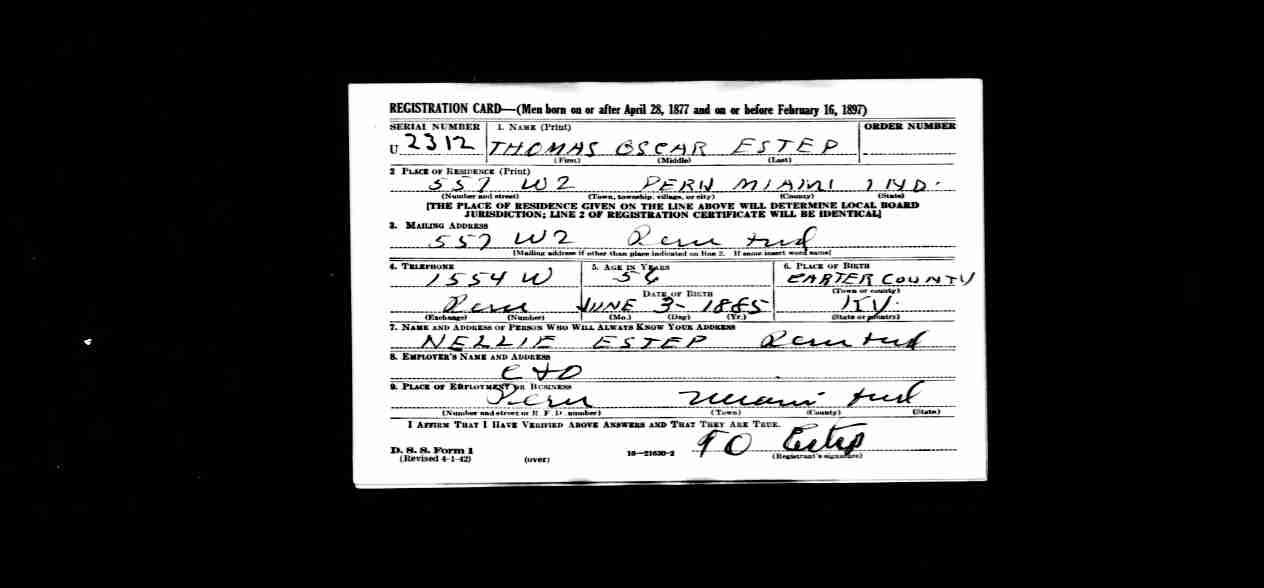 REGISTRATION CARD—(Men born on or after April 28, 1877 and on or before February 16, 1897)
SERIAL NUMBER 1. NAME (Print) ORDER NUMBER
U 2312 THOMAS OSCAR ESTEP
(First) (Middle) (Last)
2 PLACE OF RESIDENCE (Print)
557 W 2 PERU MIAMI IND.
(Number and street) (Town, township, village, or city) (County) (State)
[THE PLACE OF RESIDENCE GIVEN ON THE LINE ABOVE WILL DETERMINE LOCAL BOARD
JURISDICTION; LINE 2 OF REGISTRATION CERTIFICATE WILL BE IDENTICAL]
3. MAILING ADDRESS
557 W 2 Peru Ind
[Mailing address if other than place indicated on line 2. If same insert word same]
4. TELEPHONE 5. AGE IN YEARS 6. PLACE OF BIRTH
1554 W 56 CARTER COUNTY
DATE OF BIRTH (Town or county)
Peru JUNE 3- 1885 KY.
(Exchange) (Number) (Mo.) (Day) (Yr.) (State or country)
7. NAME AND ADDRESS OF PERSON WHO WILL ALWAYS KNOW YOUR ADDRESS
NELLIE ESTEP Peru Ind
8. EMPLOYER'S NAME AND ADDRESS
C + O
9. PLACE OF EMPLOYMENT OR BUSINESS
Peru Miami Ind
(Number and street or R. F. D. number) (Town) (County) (State)
I AFFIRM THAT I HAVE VERIFIED ABOVE ANSWERS AND THAT THEY ARE TRUE.
TO Estep
D. S. S. Form 1
(Revised 4-1-42) (over) 16—21630-2 (Registrant's signature)